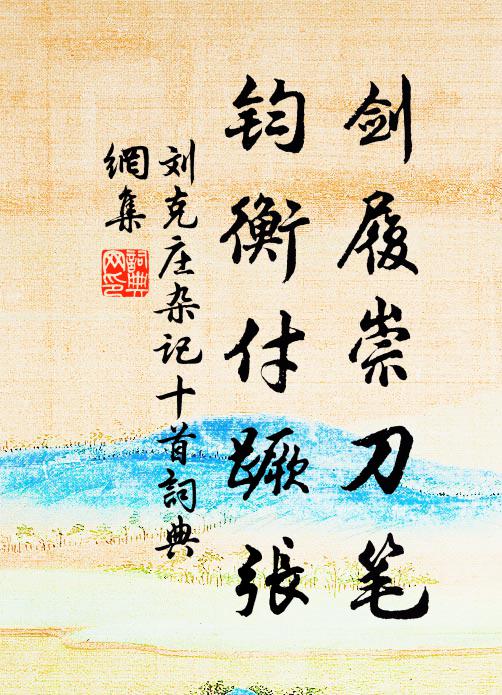 剑履崇刀笔
钧衡付蹶張
刘克庄杂记十首詞典
網集
詞典
网印